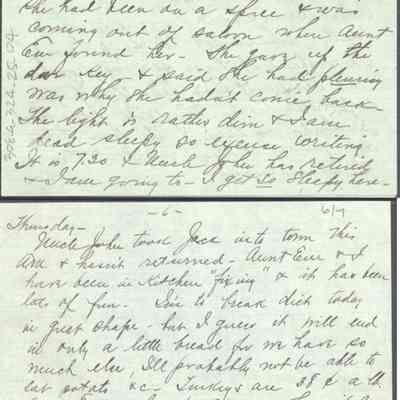 She had been on a spree & was
coming out of saloon when Aunt
Em found her. She gave up the
door key & said she had pleurisy
was why she hadn't come back
The light is rather dim & I am
dead sleepy so excuse writing
It is 7.30 & Uncle John has retired
& I am going to - I get so sleepy here -
308G-324-25-04
Thursday -
-6-
6/7
Uncle John took Jack into town this
A.M. & hasn't returned - Aunt Em & I
have been in kitchen "fixing" & it has been
lots of fun. I'm to break diet today
in great shape - but I guess it will end
in only a little bread for we have so
much else, I'll probably not be able to
eat potato &c - Turkeys are 38¢ a lb.